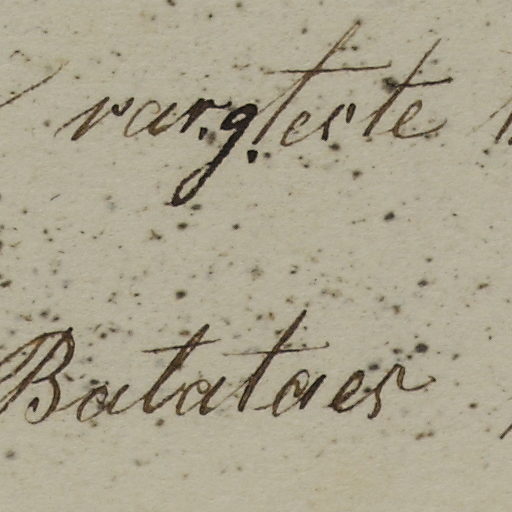 var. g. teste
Batataes